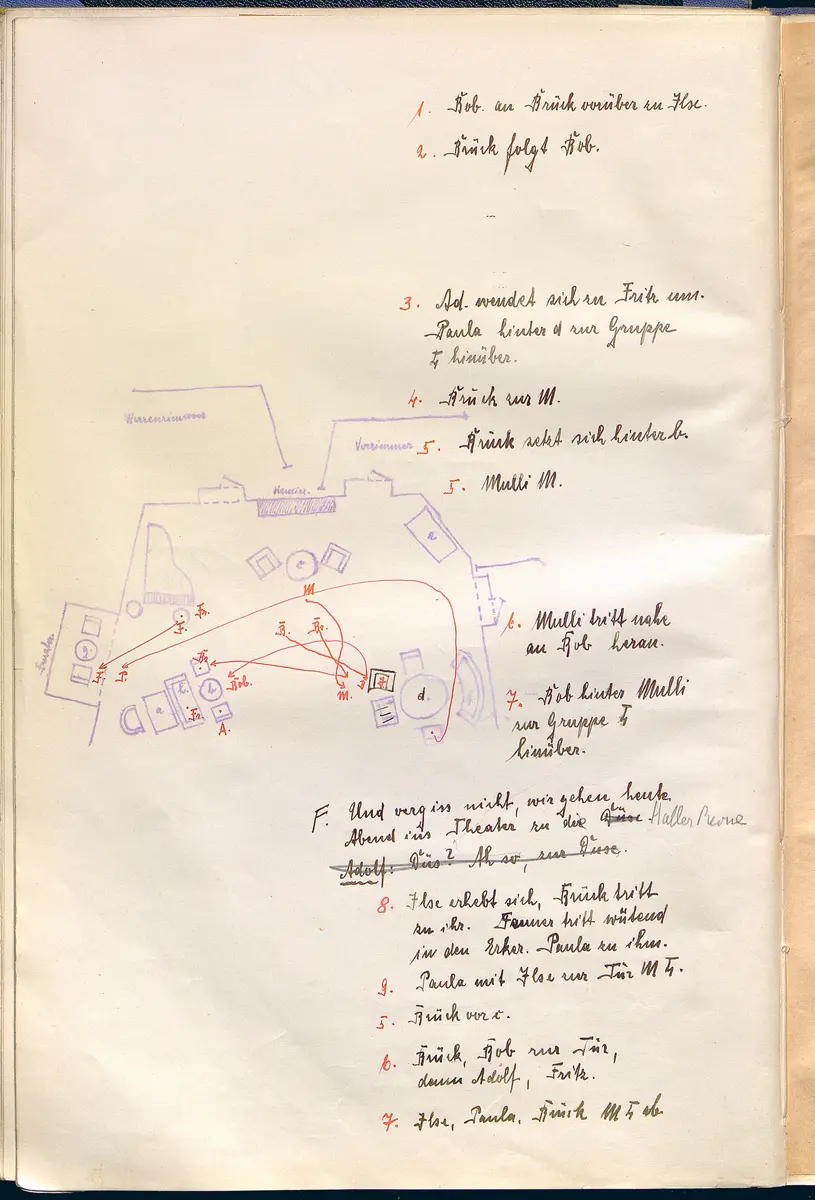 1. Bob. an Brück vorüber zu Ilse.
2. Brück folgt Bob.
3. Ad. wendet sich zu Fritz um.
Paula hinter d zur Gruppe
L hinüber.
4. Brück zur M.
5. Brück setzt sich hinter b.
5. Mulli M.
Herrenzimmer
Vorzimmer
Kamin.
6. Mulli tritt nahe
an Bob heran.
7. Bob hinter Mulli
zur Gruppe L
hinüber.
Fenster
g
e
a
M
Fr.
F.
B.
Br.
P
Br
Bob.
M.
a
b.
Fr.
A.
d.
F. Und vergiss nicht, wir gehen heute
Abend ins Theater zu die Düse Haller Revue
Adolf: Düs? Ah so, zur Duse.
8. Ilse erhebt sich, Brück tritt
zu ihr. Fenner tritt wütend
in den Erker. Paula zu ihm.
9. Paula mit Ilse zur Tür M L.
5. Brück vor c.
6. Brück, Bob zur Tür,
dann Adolf, Fritz.
7. Ilse, Paula, Brück M L ab.